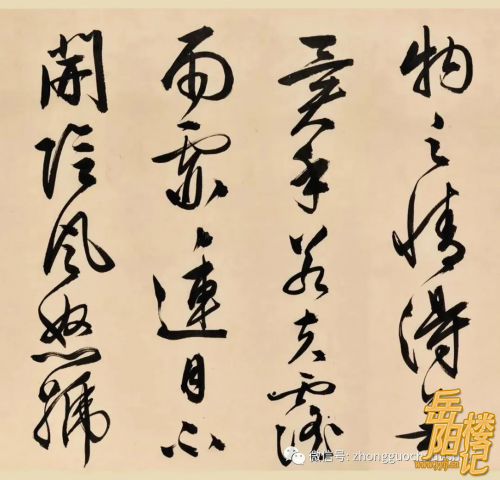 物之情得無
異乎若夫霪
雨霏〻連月不
開陰風怒號
微信号: zhongguoch
岳阳楼记